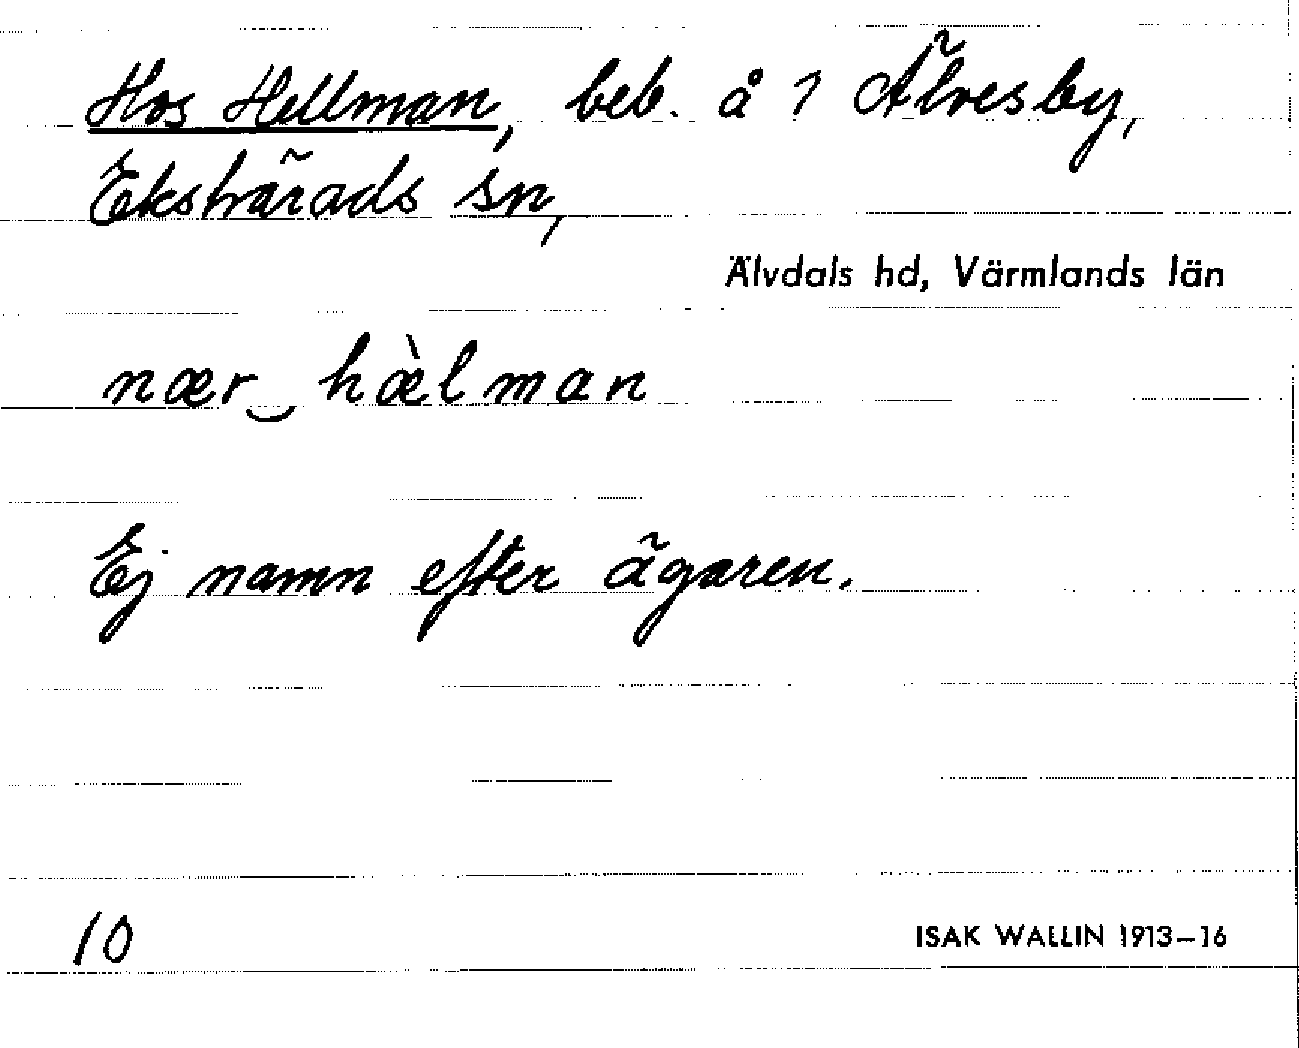 Hos Hellman, beb. å 1 Älvesby,
Ekshärads sn,
Älvdals hd, Värmlands län
nær‿hæ̀lman
Ej namn efter ägaren.
10
ISAK WALLIN 1913–16